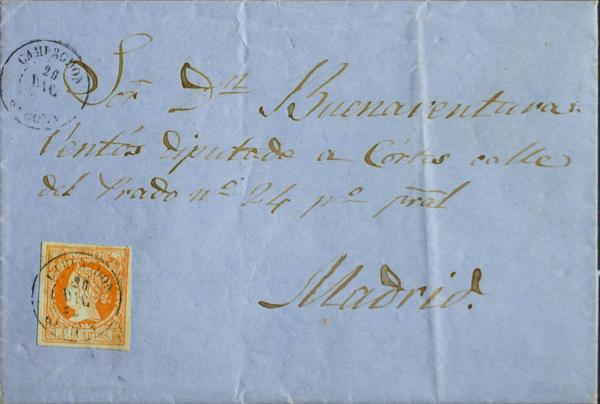 CAMERGXON
26
DIC
Sor Dn Buenaventura
Ventós diputado a Córtes calle
del Prado no 24 po pral
Madrid.
20
DIC